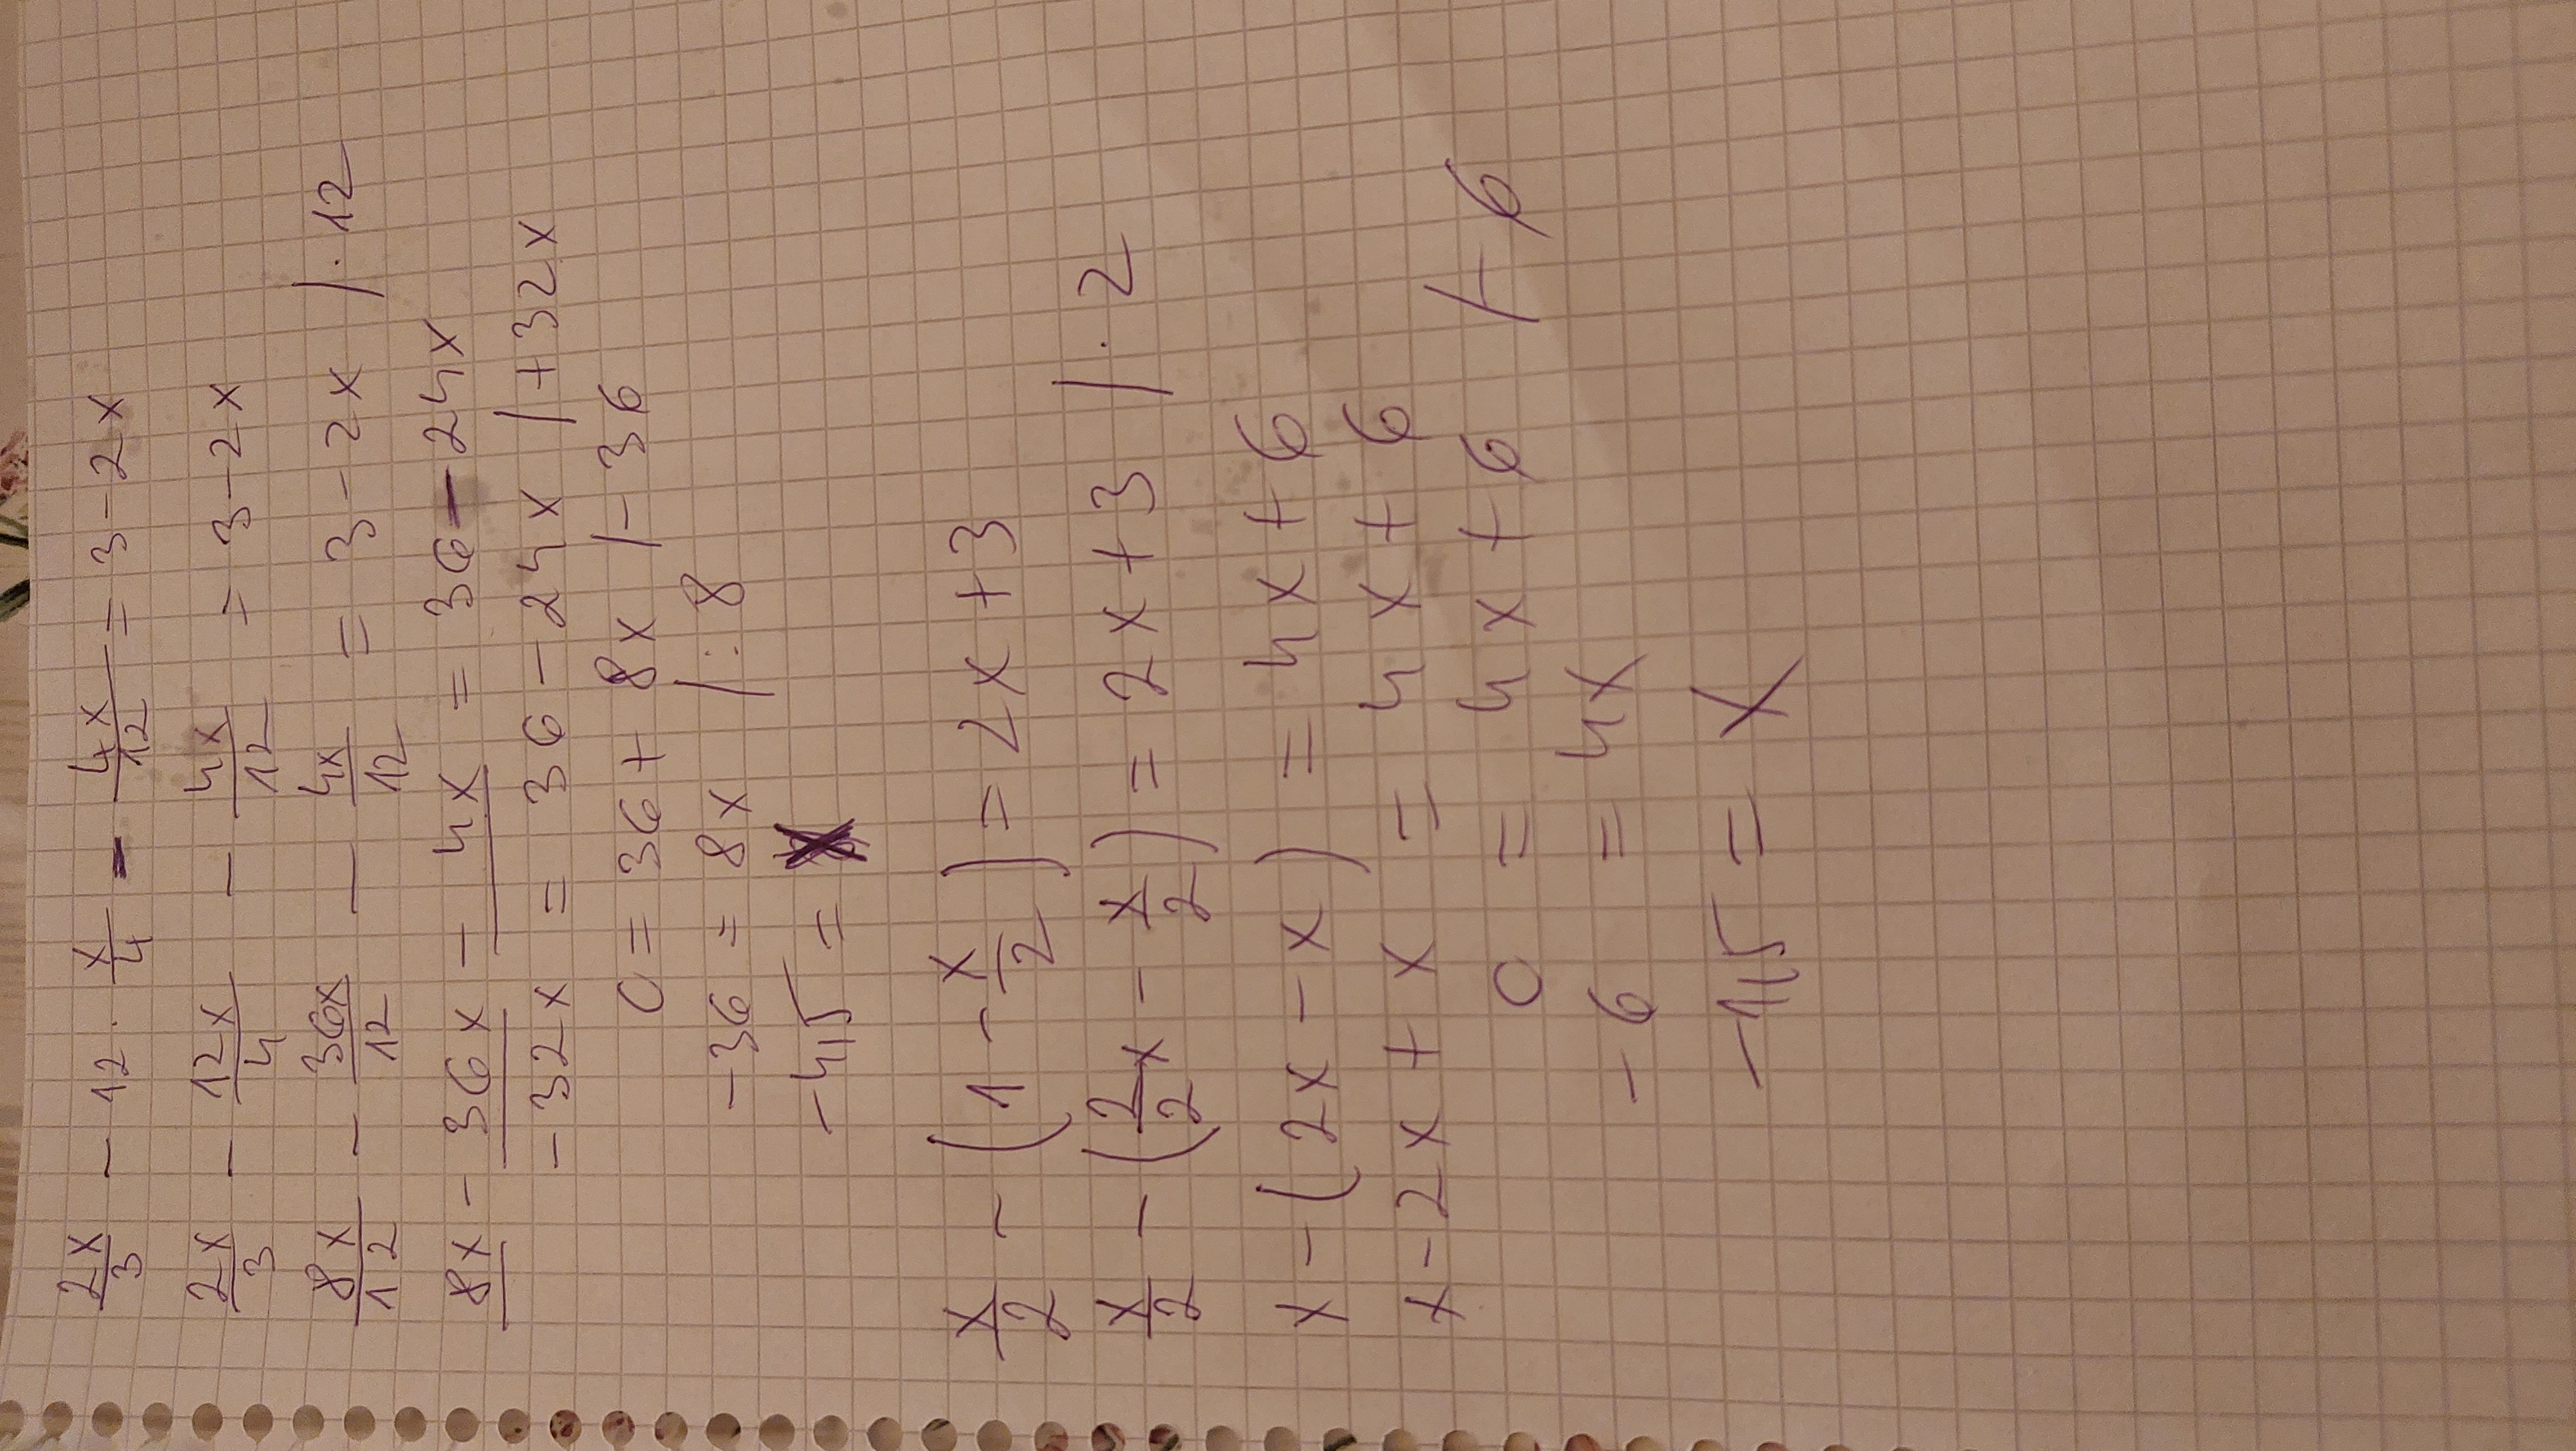 2x/3 - 12 · x/4 - 4x/12 = 3 - 2x
2x/3 - 12x/4 - 4x/12 = 3 - 2x
8x/12 - 36x/12 - 4x/12 = 3 - 2x /· 12
8x - 36x - 4x = 36 - 24x
-32x = 36 - 24x /+32x
0 = 36 + 8x /-36
-36 = 8x /:8
-4,5 =
x/2 - (1 - x/2) = 2x + 3
x/2 - (2x/2 - x/2) = 2x + 3 /· 2
x - (2x - x) = 4x + 6
x - 2x + x = 4x + 6
0 = 4x + 6 /-6
-6 = 4x
-1,5 = x